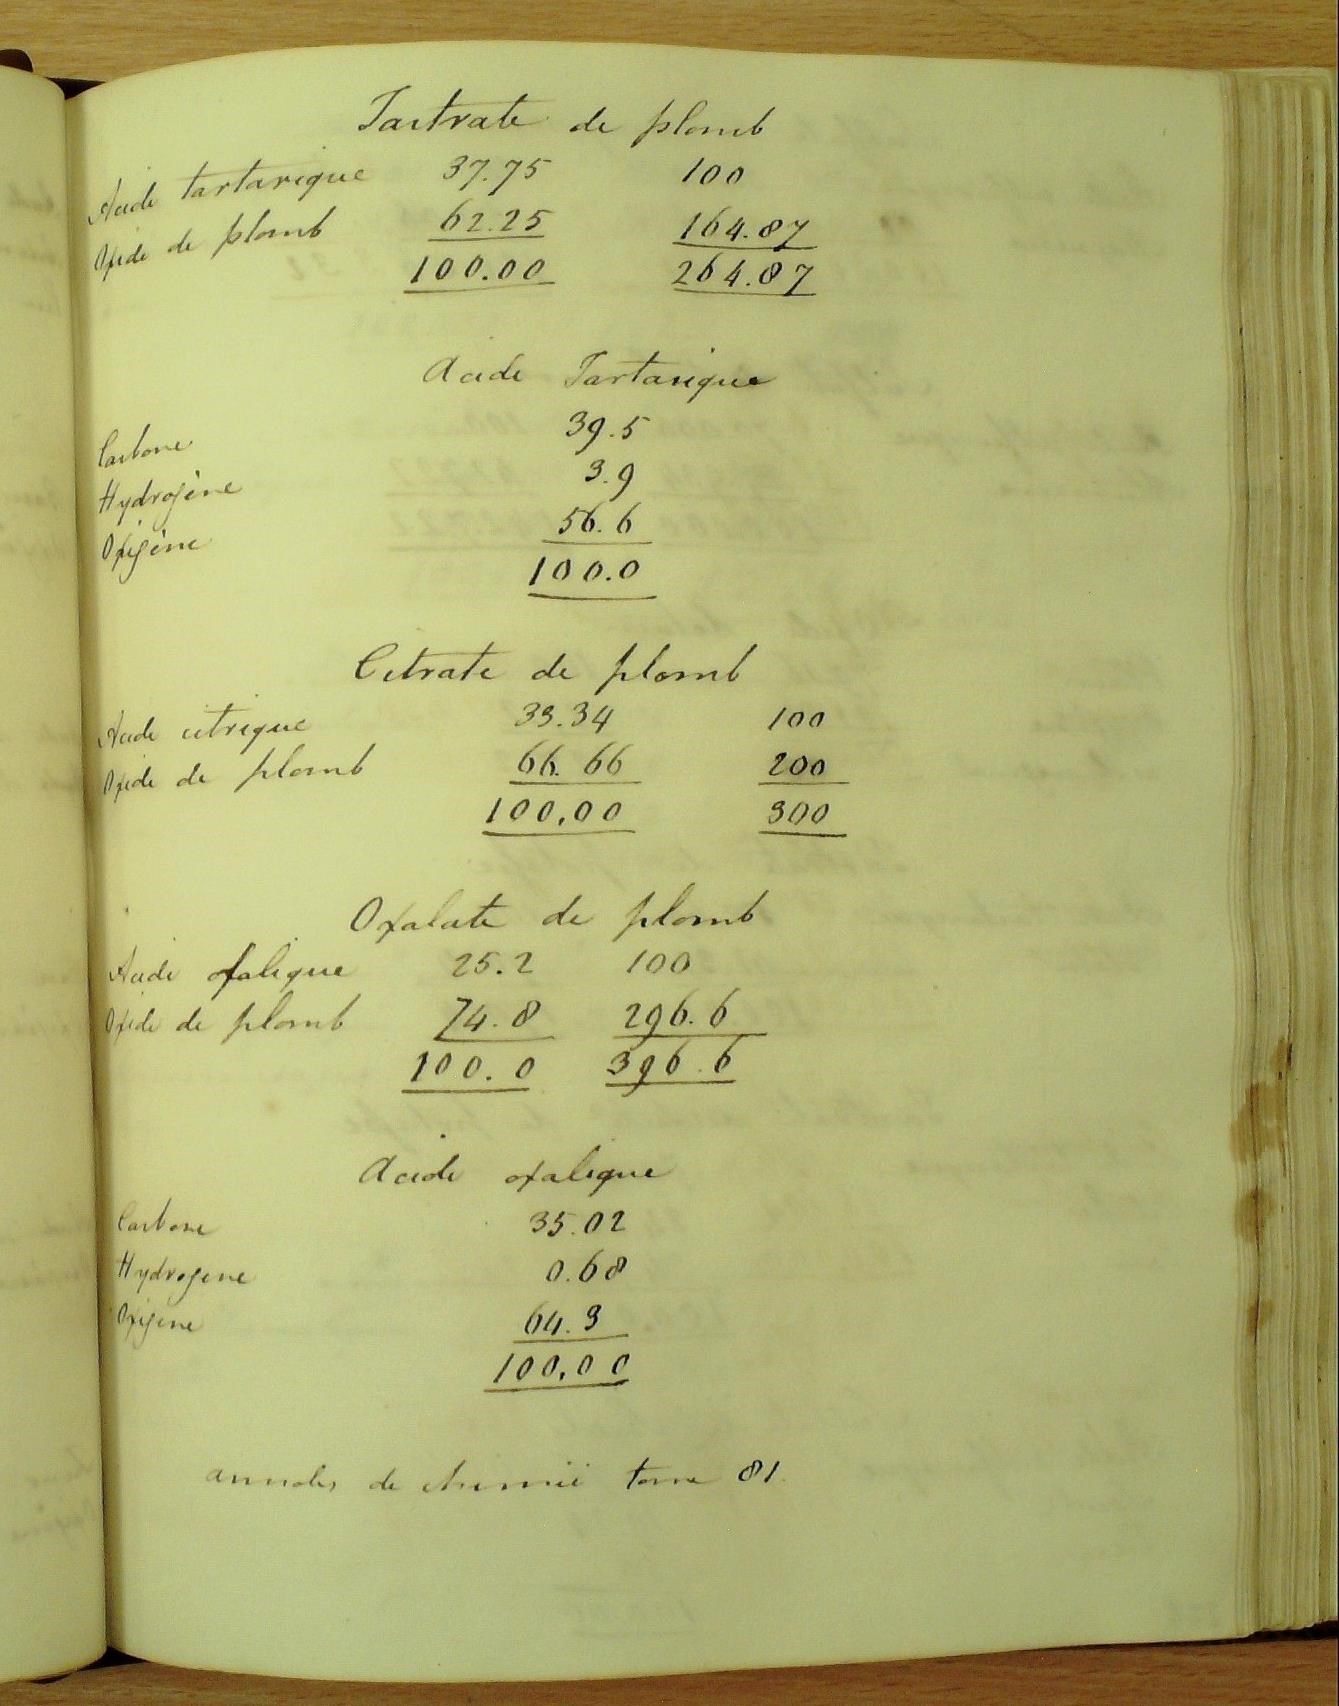 Tartrate de plomb
Acide tartarique 37.75 100
Oxide de plomb 62.25 164.87
100.00 264.87
Acide Tartarique
Carbone 39.5
Hydrogène 3.9
Oxigène 56.6
100.0
Citrate de plomb
Acide citrique 33.34 100
Oxide de plomb 66.66 200
100,00 300
Oxalate de plomb
Acide oxalique 25.2 100
Oxide de plomb 74.8 296.6
100.0 396.6
Acide oxalique
Carbone 35.02
Hydrogene 0.68
Oxigene 64.3
100,00
annales de chimie tome 81.